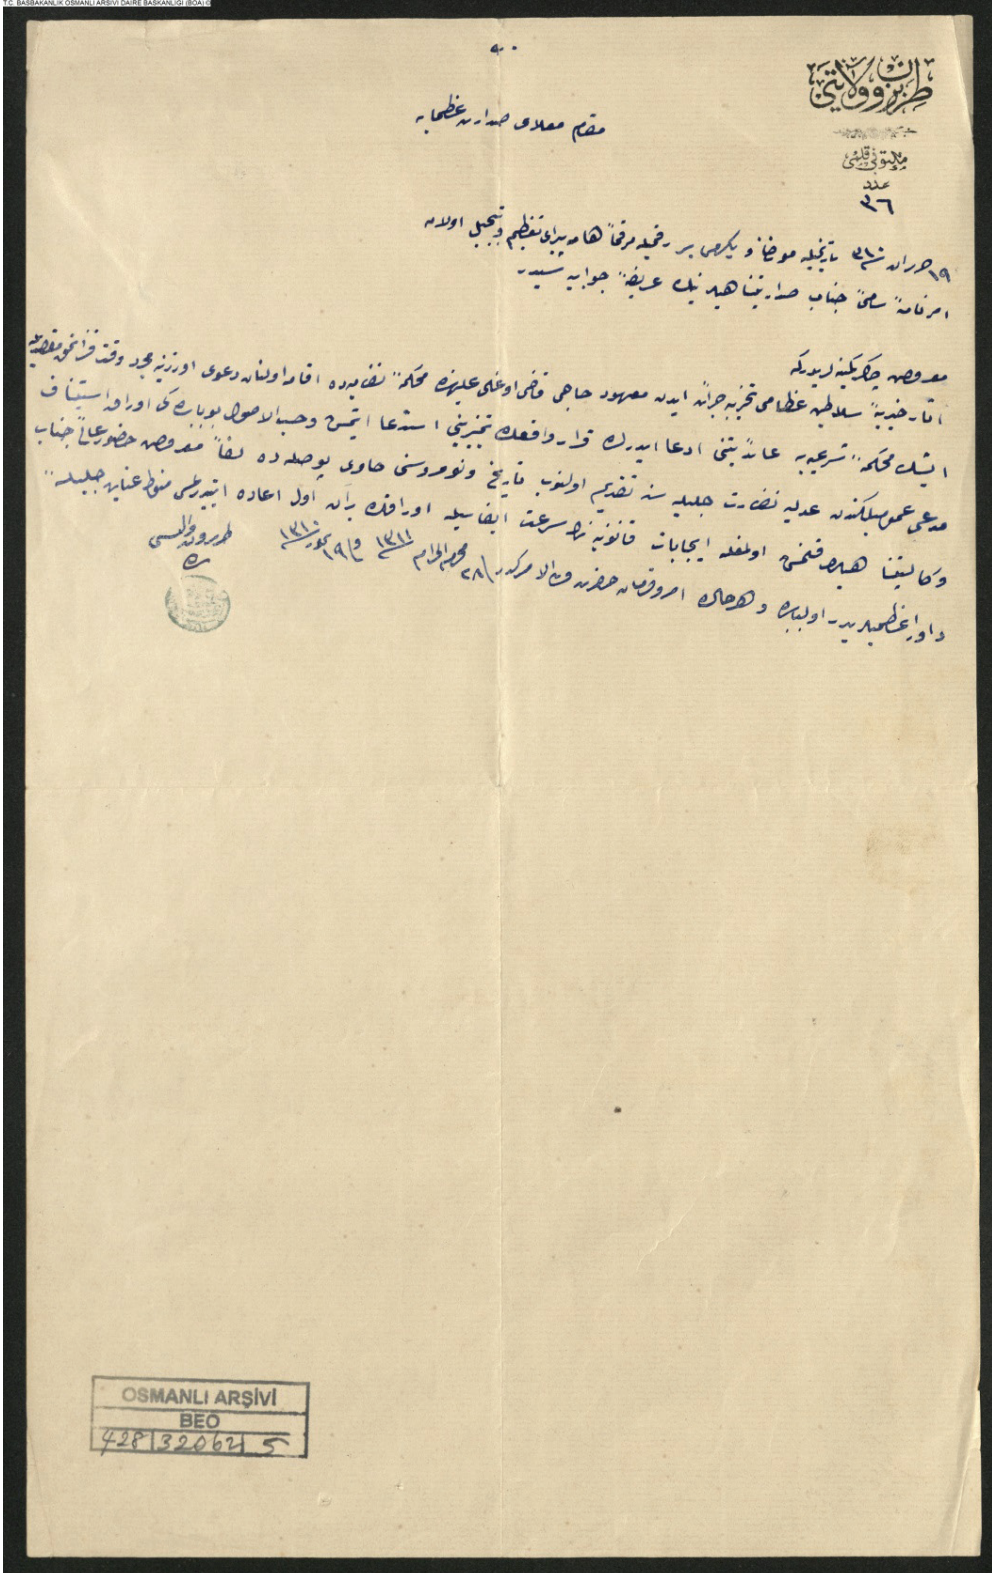 T.C. BAŞBAKANLIK OSMANLI ARŞİVİ DAİRE BAŞKANLIĞI (BOA) ©
طربزون ولايتى
مكتوبى قلمى
عدد
٣٦
مقام معلاى صدارت عظمايه
١٩ حزيران سنه ٣١٠ تاريخيله موضحاً و يكرمى بر رقميله مرقماً هامه پيراى تعظيم و تبجيل اولان
امرنامهٔ سامئ جناب صدارتپناهيلرينك عريضهٔ جوابيه سيدر
معروض چاكر كمينه لريدركه
آثار خيريهٔ سلاطين عظامى تخريبه جرأت ايدن معهود حاجى قاضى اوغلى عليهنه محكمهٔ نظاميه ده اقامه اولنان دعوى اوزرينه مجرد وقت قزانمق مقصديله
ايشك محكمهٔ شرعيه يه عائديتنى ادعا ايدرك قرار واقعك تميزينى استدعا ايتمش وحسب الاصول بوبابده كى اوراق استيناف
مدعى عموميلكندن عدليه نظارت جليله سنه تقديم اولنوب تاريخ ونومروسنى حاوى پوصله ده لفاً معروض حضور عالئ جناب
وكالتپناهيلرى قلنمش اولمغله ايجابات قانونيه نك سرعت ايفاسيله اوراقك بر آن اول اعاده ايتديرلمسى منوط عنايت جليلهٔ
داور اعظميلريدر اولبابده و هر حالده امر وفرمان حضرت من له الامركدر
٢٨ محرم الحرام سنه ١٣١٢ و ١٩ تموز سنه ١٣١٠
طربزون واليسى
OSMANLI ARŞİVİ
BEO
428 32062 5